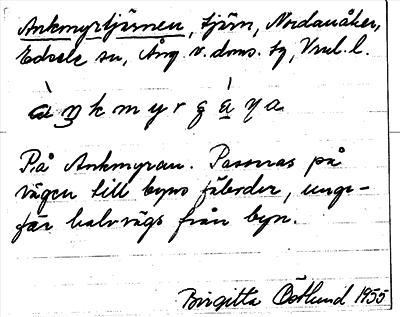 Ankmyrtjärnen, tjärn, Nordanåker,
Edsele sn, Ång. v. doms. sg, Vnl. l.
På Ankmyran. Passeras på
vägen till byns fäbodar, unge-
fär halvvägs från byn.
Birgitta Östlund 1955